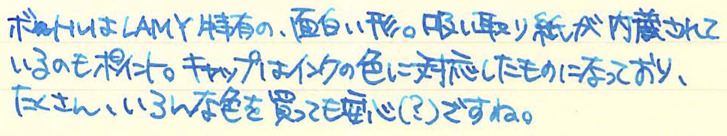 ボトルはLAMY特有の、面白い形。吸い取り紙が内蔵されて
いるのもポイント。キャップはインクの色に対応したものになっており、
たくさん、いろんな色を買っても安心(?)ですね。